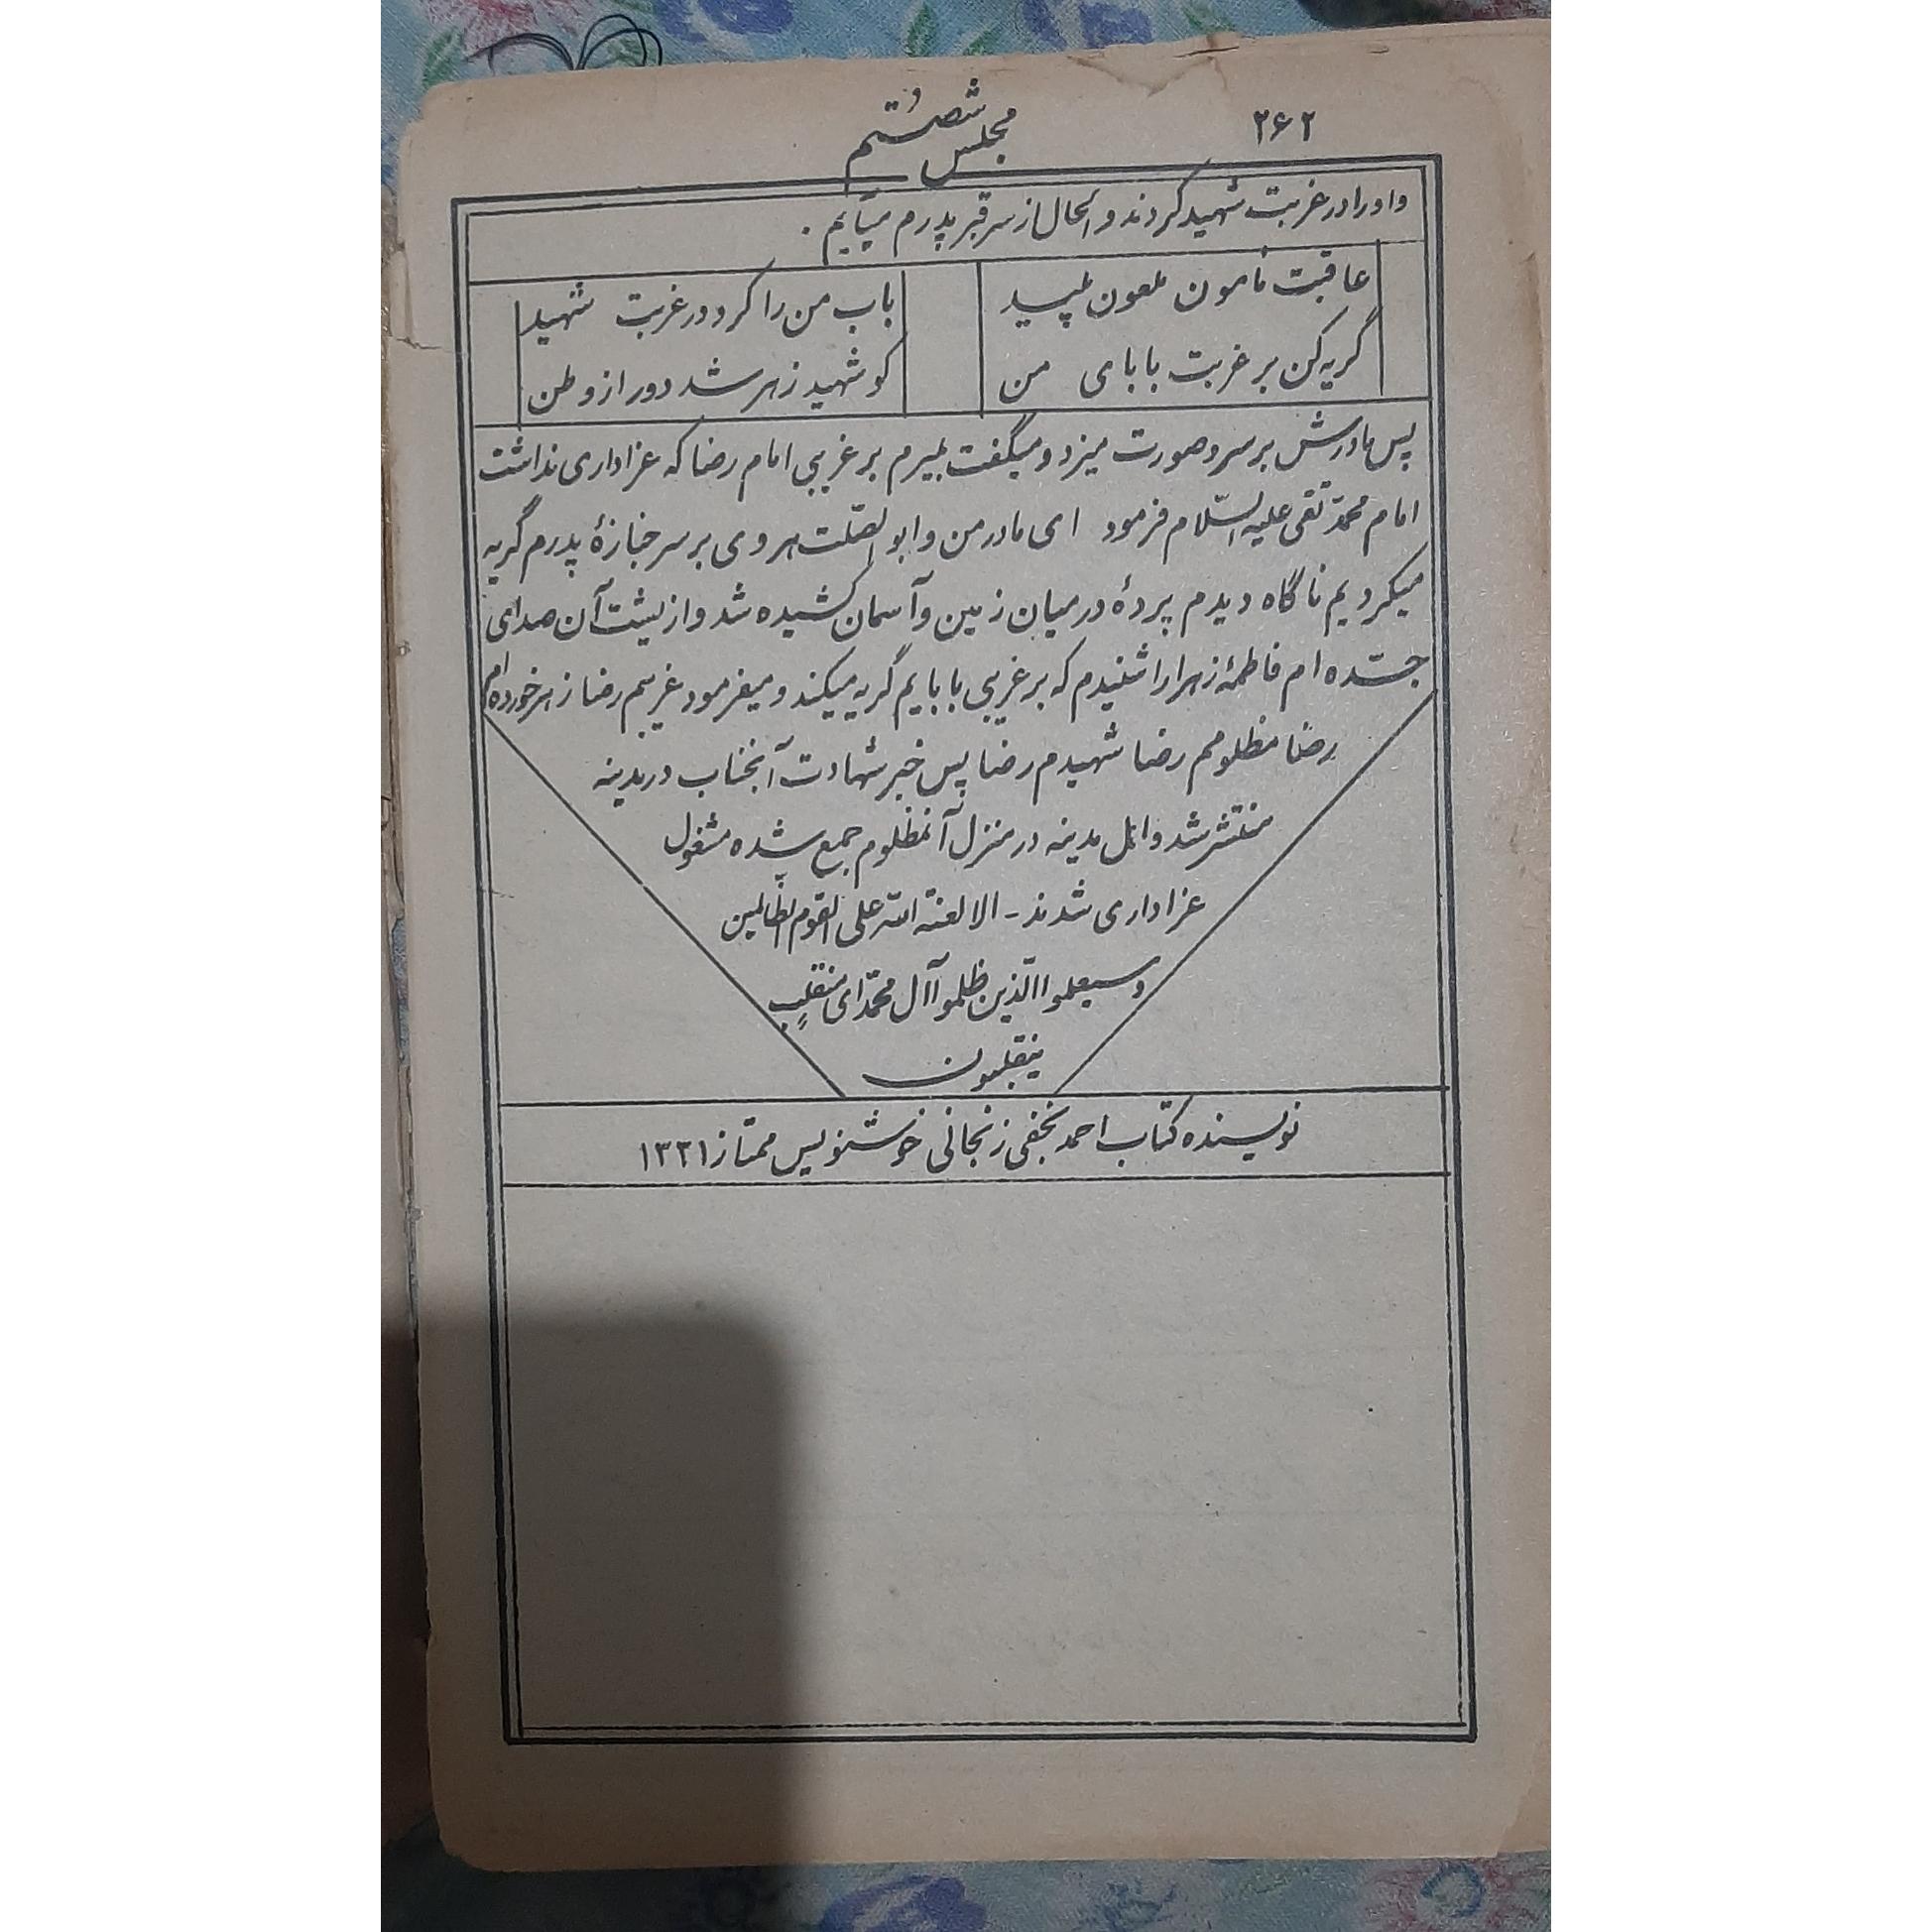 ۲۶۲
مجلس شصتم
و او را در غربت شهید کردند و الحال از سر قبر پدرم میآیم .
عاقبت مامون ملعون پلید باب من را کرد در غربت شهید
گریه کن بر غربت بابای من کو شهید زهر شد دور از وطن
پس مادرش بر سر و صورت میزد و میگفت بمیرم بر غریبی امام رضا که عزاداری نداشت
امام محمّد تقی علیه السّلام فرمود ای مادر من و ابو الصّلت هروی بر سر جنازهٔ پدرم گریه
میکردیم ناگاه دیدم پردهٔ در میان زمین و آسمان کشیده شد و از پشت آن صدای
جدّه ام فاطمهٔ زهرا را شنیدم که بر غریبی بابایم گریه میکند و میفرمود غریبم رضا زهر خورده ام
رضا مظلومم رضا شهیدم رضا پس خبر شهادت آنجناب در مدینه
منتشر شد و اهل مدینه در منزل آنمظلوم جمع شده مشغول
عزاداری شدند - الا لعنة الله علی القوم الظّالمین
و سیعلموا الّذین ظلموا آل محمّد ای منقلبٍ
ینقلبون
نویسنده کتاب احمد نجفی زنجانی خوشنویس ممتاز ۱۳۳۱